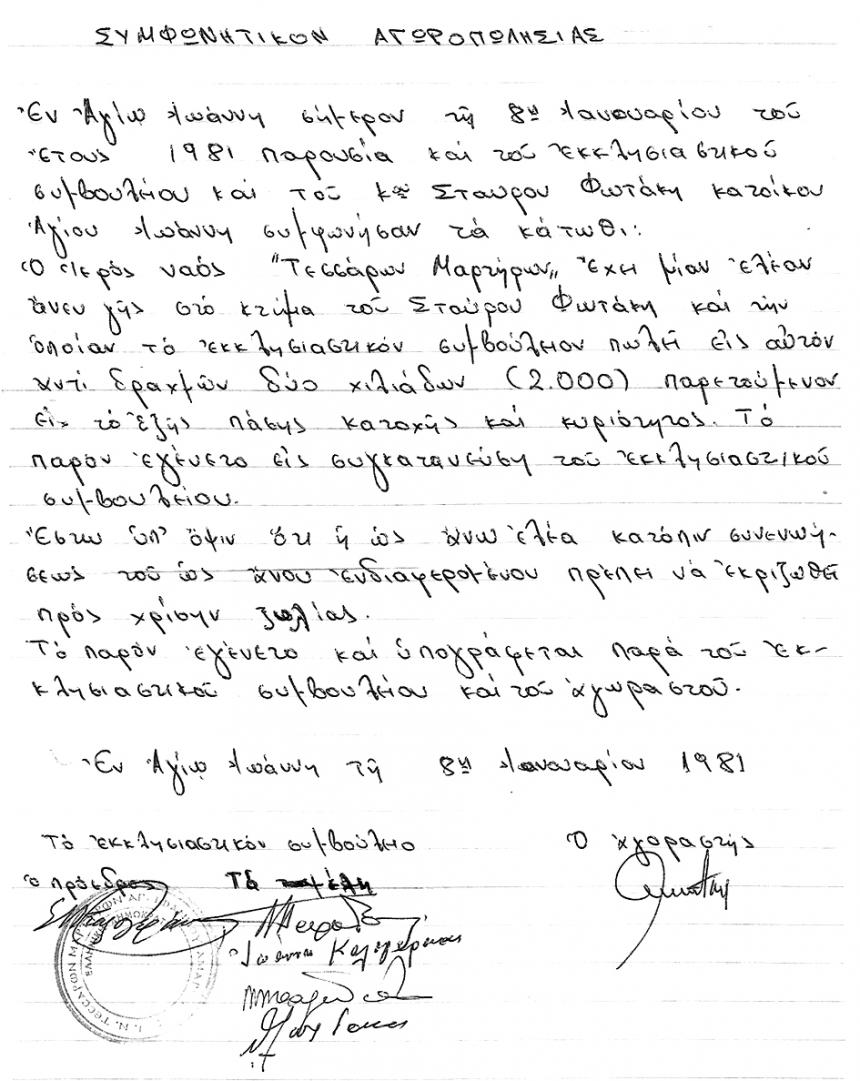 ΣΥΜΦΩΝΗΤΙΚΟΝ ΑΓΩΡΟΠΩΛΗΣΙΑΣ
Ἐν Ἁγίῳ Ἰωάννη σήμερον τῇ 8ῃ Ἰανουαρίου τοῦ
ἔτους 1981 παρουσία καὶ τοῦ ἐκκλησιαστικοῦ
συμβουλείου καὶ τοῦ κου Σταύρου Φωτάκη κατοίκου
Ἁγίου Ἰωάννη συμφωνήσαν τὰ κάτωθι:
Ὁ Ἱερός ναός "Τεσσάρων Μαρτήρων„ ἔχει μίαν ἐλέαν
ἄνευ γῆς στό κτῆμα τοῦ Σταύρου Φωτάκη καὶ τὴν
ὁποίαν τὸ ἐκκλησιαστικόν συμβούλειον πωλεῖ εἰς αὐτόν
ἀντί δραχμῶν δύο χιλιάδων (2.000) παρετούμενον
εἰς τό ἑξῆς πάσης κατοχῆς καὶ κυριότητος. Τὸ
παρὸν ἐγένετο εἰς συγκατανεύση τοῦ ἐκκλησιαστικοῦ
συμβουλείου.
Ἔστω ὑπ' ὄψιν ὅτι ἡ ὡς ἄνω ἐλέα κατόπιν συνενωή-
σεως τοῦ ὡς ἄνου ἐνδιαφερομένου πρέπει νά ἐκριζωθεῖ
πρός χρίσην ξυλίας.
Τὸ παρὸν ἐγένετο καὶ ὑπογράφεται παρά τοῦ ἐκ-
κλησιαστικοῦ συμβουλείου καὶ τοῦ ἀγωραστοῦ.
Ἐν Ἁγίῳ Ἰωάννη τῇ 8ῃ Ἰανουαρίου 1981
Τὸ ἐκκλησιαστικόν συμβούλιο
Ὁ ἀγοραστής
ὁ πρόεδρος Τὰ μέλη
Ἰωάννη Καλογεράκης
Ι.Ν. ΤΕΣΣΑΡΩΝ ΜΑΡΤΥΡΩΝ ΑΓ.